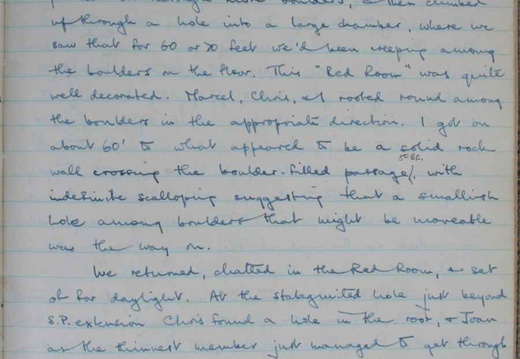 up through a hole into a large chamber, where we
saw that for 60 or 70 feet we'd been creeping among
the boulders on the floor. This "Red Room" was quite
well decorated. Marcel, Chris, & I rooted round among
the boulders in the appropriate direction. I got on
about 60' to what appeared to be a solid rock
wall crossing the boulder-filled passage, with
indefinite scalloping suggesting that a smallish
hole among boulders that might be moveable
was the way on.
We returned, chatted in the Red Room, & set
of for daylight. At the hole just beyond
S.P. extension Chris found a hole in the roof, & Joan
as the thinnest member just managed to get through